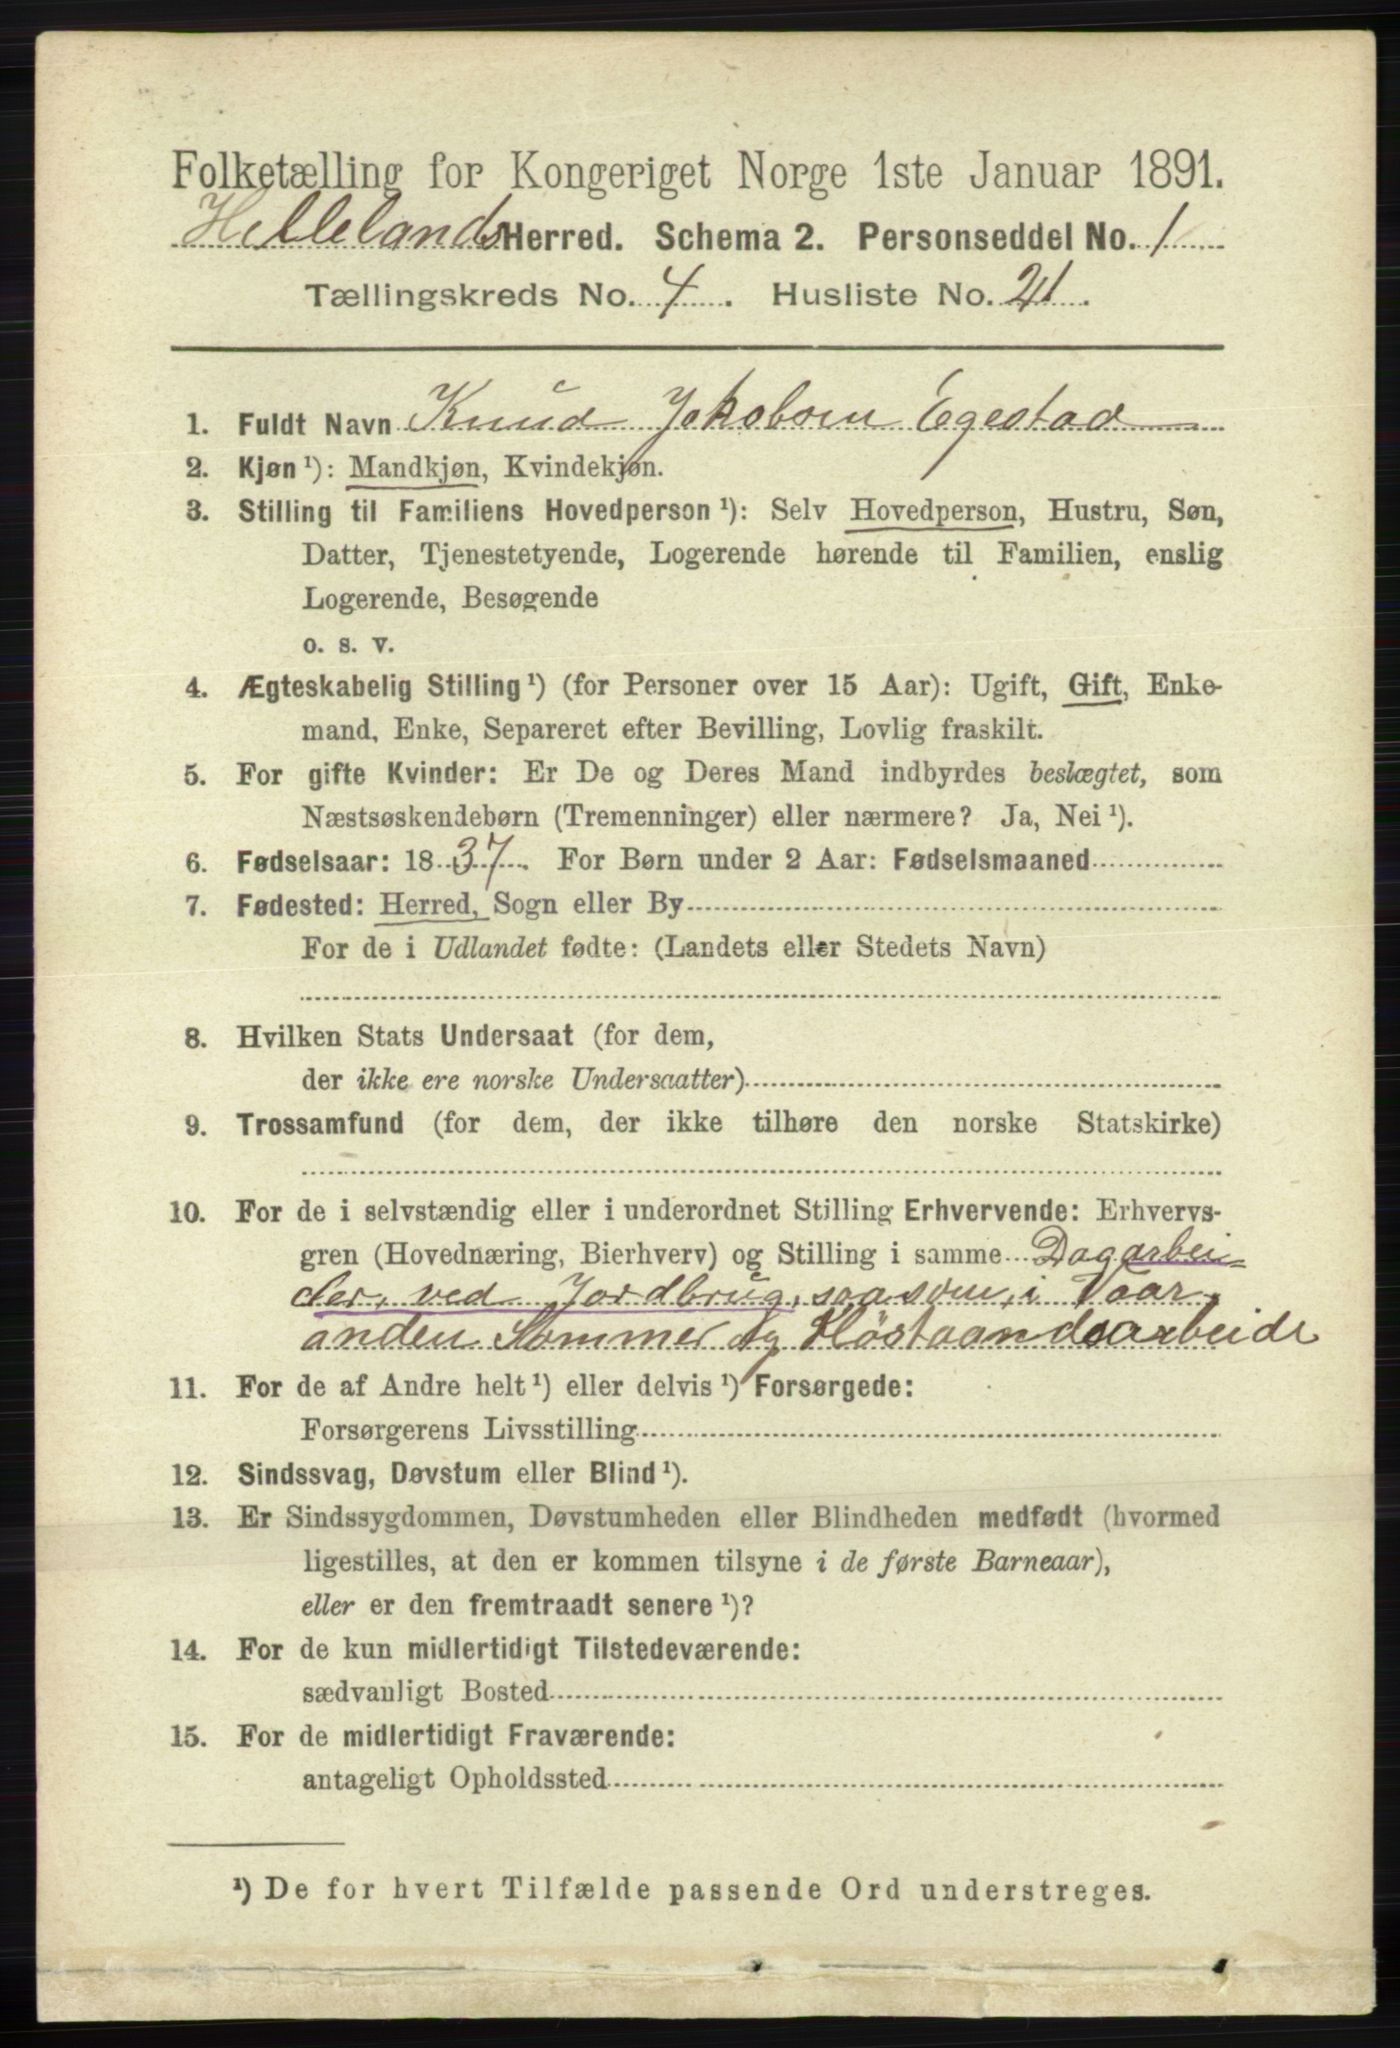 Folketælling for Kongeriget Norge 1ste Januar 1891.
Hellelands Herred. Schema 2. Personseddel No. 1
Tællingskreds No. 4. Husliste No. 21.
1. Fuldt Navn Knud Jakobsen Egestad
2. Kjøn ¹): Mandkjøn, Kvindekjøn.
3. Stilling til Familiens Hovedperson ¹): Selv Hovedperson, Hustru, Søn,
Datter, Tjenestetyende, Logerende hørende til Familien, enslig
Logerende, Besøgende
o. s. v.
4. Ægteskabelig Stilling ¹) (for Personer over 15 Aar): Ugift, Gift, Enke-
mand, Enke, Separeret efter Bevilling, Lovlig fraskilt.
5. For gifte Kvinder: Er De og Deres Mand indbyrdes beslægtet, som
Næstsøskendebørn (Tremenninger) eller nærmere? Ja, Nei ¹).
6. Fødselsaar: 1837. For Børn under 2 Aar: Fødselsmaaned
7. Fødested: Herred, Sogn eller By
For de i Udlandet fødte: (Landets eller Stedets Navn)
8. Hvilken Stats Undersaat (for dem,
der ikke ere norske Undersaatter)
9. Trossamfund (for dem, der ikke tilhøre den norske Statskirke)
10. For de i selvstændig eller i underordnet Stilling Erhvervende: Erhvervs-
gren (Hovednæring, Bierhverv) og Stilling i samme Dagarbei-
der, ved Jordbrug, saasom, i Vaar,
anden Sommer og Høstaandsarbeide
11. For de af Andre helt ¹) eller delvis ¹) Forsørgede:
Forsørgerens Livsstilling
12. Sindssvag, Døvstum eller Blind ¹).
13. Er Sindssygdommen, Døvstumheden eller Blindheden medfødt (hvormed
ligestilles, at den er kommen tilsyne i de første Barneaar),
eller er den fremtraadt senere ¹)?
14. For de kun midlertidigt Tilstedeværende:
sædvanligt Bosted
15. For de midlertidigt Fraværende:
antageligt Opholdssted
¹) De for hvert Tilfælde passende Ord understreges.